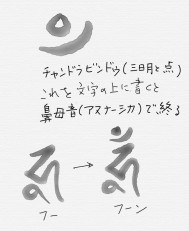 𑖼
チャンドラビンドゥ(三日月と点)
これを文字の上に書くと
鼻母音(アヌナーシカ)で終る
𑖮𑖳 → 𑖮𑖳𑖼
フー フーン